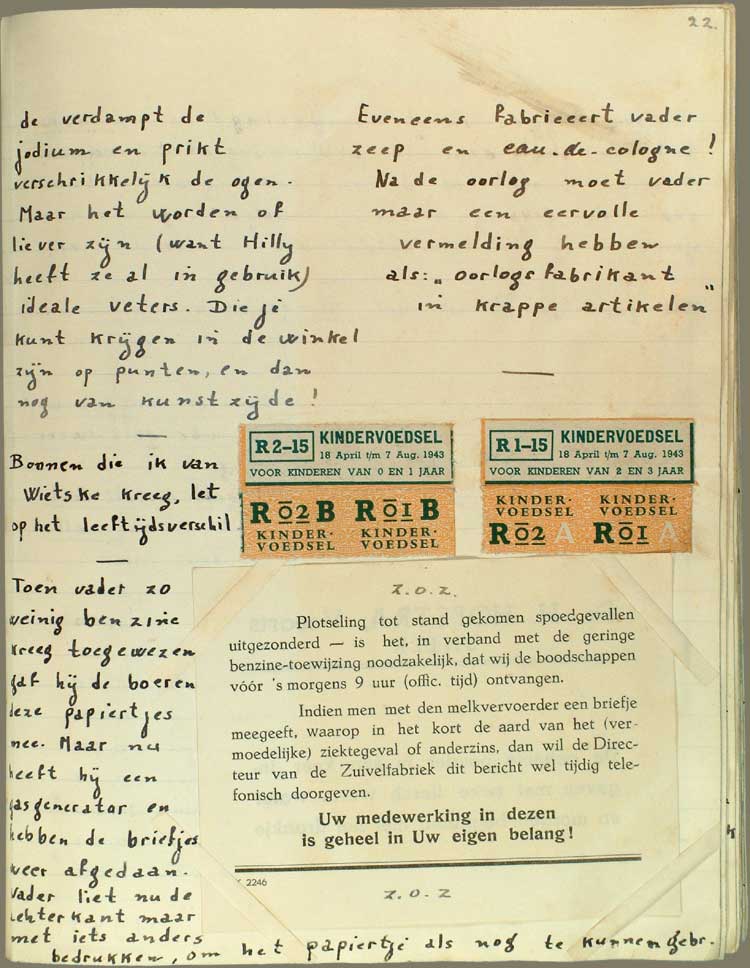 22.
de verdampt de
jodium en prikt
verschrikkelijk de ogen.
Maar het worden of
liever zijn (want Hilly
heeft ze al in gebruik)
ideale veters. Die je
kunt krijgen in de winkel
zijn op punten, en dan
nog van kunstzijde!
Eveneens fabriceert vader
zeep en eau-de-cologne!
Na de oorlog moet vader
maar een eervolle
vermelding hebben
als: „oorlogsfabrikant
in krappe artikelen"
Bonnen die ik van
Wietske kreeg, let
op het leeftijdsverschil
R2-15 KINDERVOEDSEL
18 April t/m 7 Aug. 1943
VOOR KINDEREN VAN 0 EN 1 JAAR
R02B R01B
KINDER- KINDER-
VOEDSEL VOEDSEL
R1-15 KINDERVOEDSEL
18 April t/m 7 Aug. 1943
VOOR KINDEREN VAN 2 EN 3 JAAR
KINDER- KINDER-
VOEDSEL VOEDSEL
R02A R01A
Toen vader zo
weinig benzine
kreeg toegewezen
gaf hij de boeren
deze papiertjes
mee. Maar nu
heeft hij een
gasgenerator en
hebben de briefjes
weer afgedaan.
Vader liet nu de
achterkant maar
met iets anders
bedrukken, om het papiertje alsnog te kunnen gebr.
z.o.z.
Plotseling tot stand gekomen spoedgevallen
uitgezonderd — is het, in verband met de geringe
benzine-toewijzing noodzakelijk, dat wij de boodschappen
vóór 's morgens 9 uur (offic. tijd) ontvangen.
Indien men met den melkvervoerder een briefje
meegeeft, waarop in het kort de aard van het (ver-
moedelijke) ziektegeval of anderzins, dan wil de Direc-
teur van de Zuivelfabriek dit bericht wel tijdig tele-
fonisch doorgeven.
Uw medewerking in dezen
is geheel in Uw eigen belang!
K 2246
z.o.z